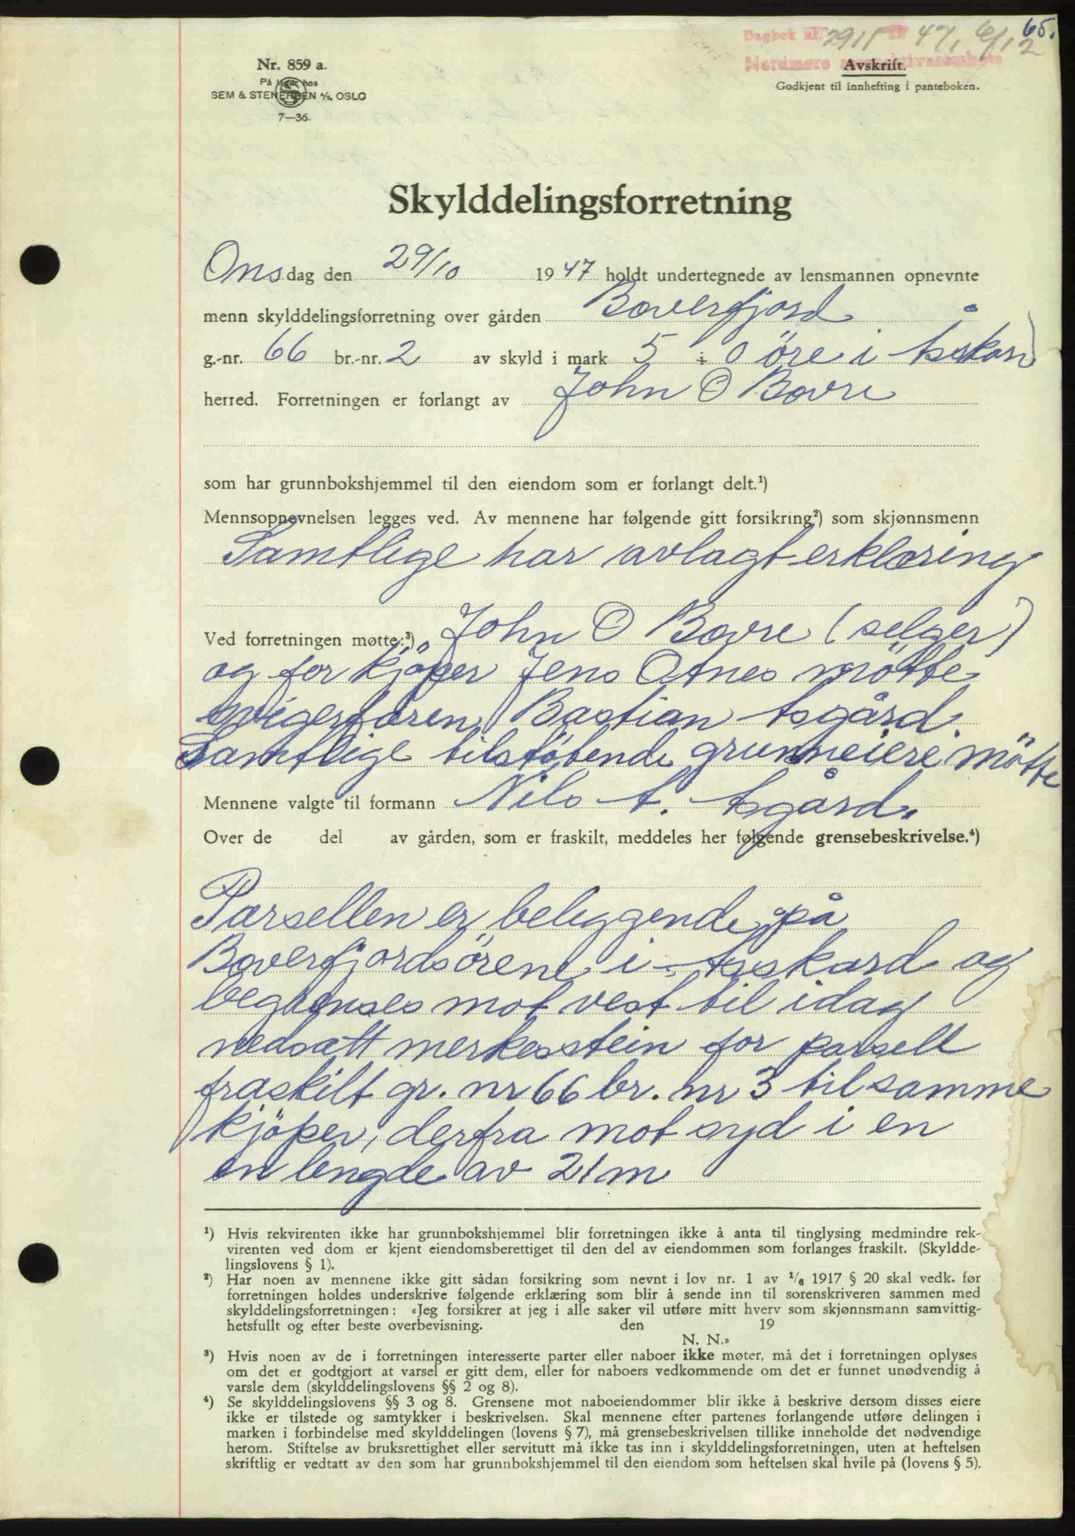 65.
Dagbok nr. 2915 1947, 6/12
Nordmøre sorenskriverembete
Nr. 859 a.
På lager hos
SEM & STENERSEN A/S, OSLO
7—36.
Avskrift.
Godkjent til innhefting i panteboken.
Skylddelingsforretning
Onsdag den 29/10 1947 holdt undertegnede av lensmannen opnevnte
menn skylddelingsforretning over gården Boverfjord
g.-nr. 66 br.-nr. 2 av skyld i mark 5 + 0 øre i Åsskard
herred. Forretningen er forlangt av John O Bovre
som har grunnbokshjemmel til den eiendom som er forlangt delt.¹)
Mennsopnevnelsen legges ved. Av mennene har følgende gitt forsikring²) som skjønnsmenn
Samtlige har avlagt erklæring
Ved forretningen møtte:³) John O Bovre (selger)
og for kjöper Jens Otnes mötte
svigerfaren, Bastian Åsgård.
Samtlige tilstøtende grunneiere mötte
Mennene valgte til formann Nils A. Åsgård.
Over de del av gården, som er fraskilt, meddeles her følgende grensebeskrivelse.⁴)
Parsellen er beliggende på
Boverfjordsörene i Åsskard og
begrenses mot vest til idag
nedsatt merkesstein for parsell
fraskilt gr. nr 66 br. nr 3 til samme
kjöper, derfra mot syd i en
en lengde av 21 m
¹) Hvis rekvirenten ikke har grunnbokshjemmel blir forretningen ikke å anta til tinglysing medmindre rek-
virenten ved dom er kjent eiendomsberettiget til den del av eiendommen som forlanges fraskilt. (Skyldde-
lingslovens § 1).
²) Har noen av mennene ikke gitt sådan forsikring som nevnt i lov nr. 1 av ¹/₆ 1917 § 20 skal vedk. før
forretningen holdes underskrive følgende erklæring som blir å sende inn til sorenskriveren sammen med
skylddelingsforretningen: «Jeg forsikrer at jeg i alle saker vil utføre mitt hverv som skjønnsmann samvittig-
hetsfullt og efter beste overbevisning. den 19
N. N.»
³) Hvis noen av de i forretningen interesserte parter eller naboer ikke møter, må det i forretningen oplyses
om det er godtgjort at varsel er gitt dem, eller for naboers vedkommende om det er funnet unødvendig å
varsle dem (skylddelingslovens §§ 2 og 8).
⁴) Se skylddelingslovens §§ 3 og 8. Grensene mot naboeiendommer blir ikke å beskrive dersom disses eiere
ikke er tilstede og samtykker i beskrivelsen. Skal mennene efter partenes forlangende utføre delingen i
marken i forbindelse med skylddelingen (lovens § 7), må grensebeskrivelsen tillike inneholde det nødvendige
herom. Stiftelse av bruksrettighet eller servitutt må ikke tas inn i skylddelingsforretningen, uten at heftelsen
skriftlig er vedtatt av den som har grunnbokshjemmel til den eiendom som heftelsen skal hvile på (lovens § 5).